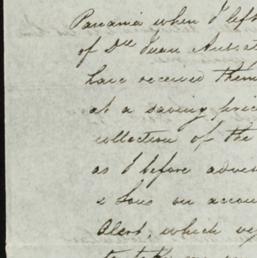 Panama when I left
of Dr Juan
have received them
at a saving pric
collection of the
as I before advis
& Sons on accou
Alert, which ve